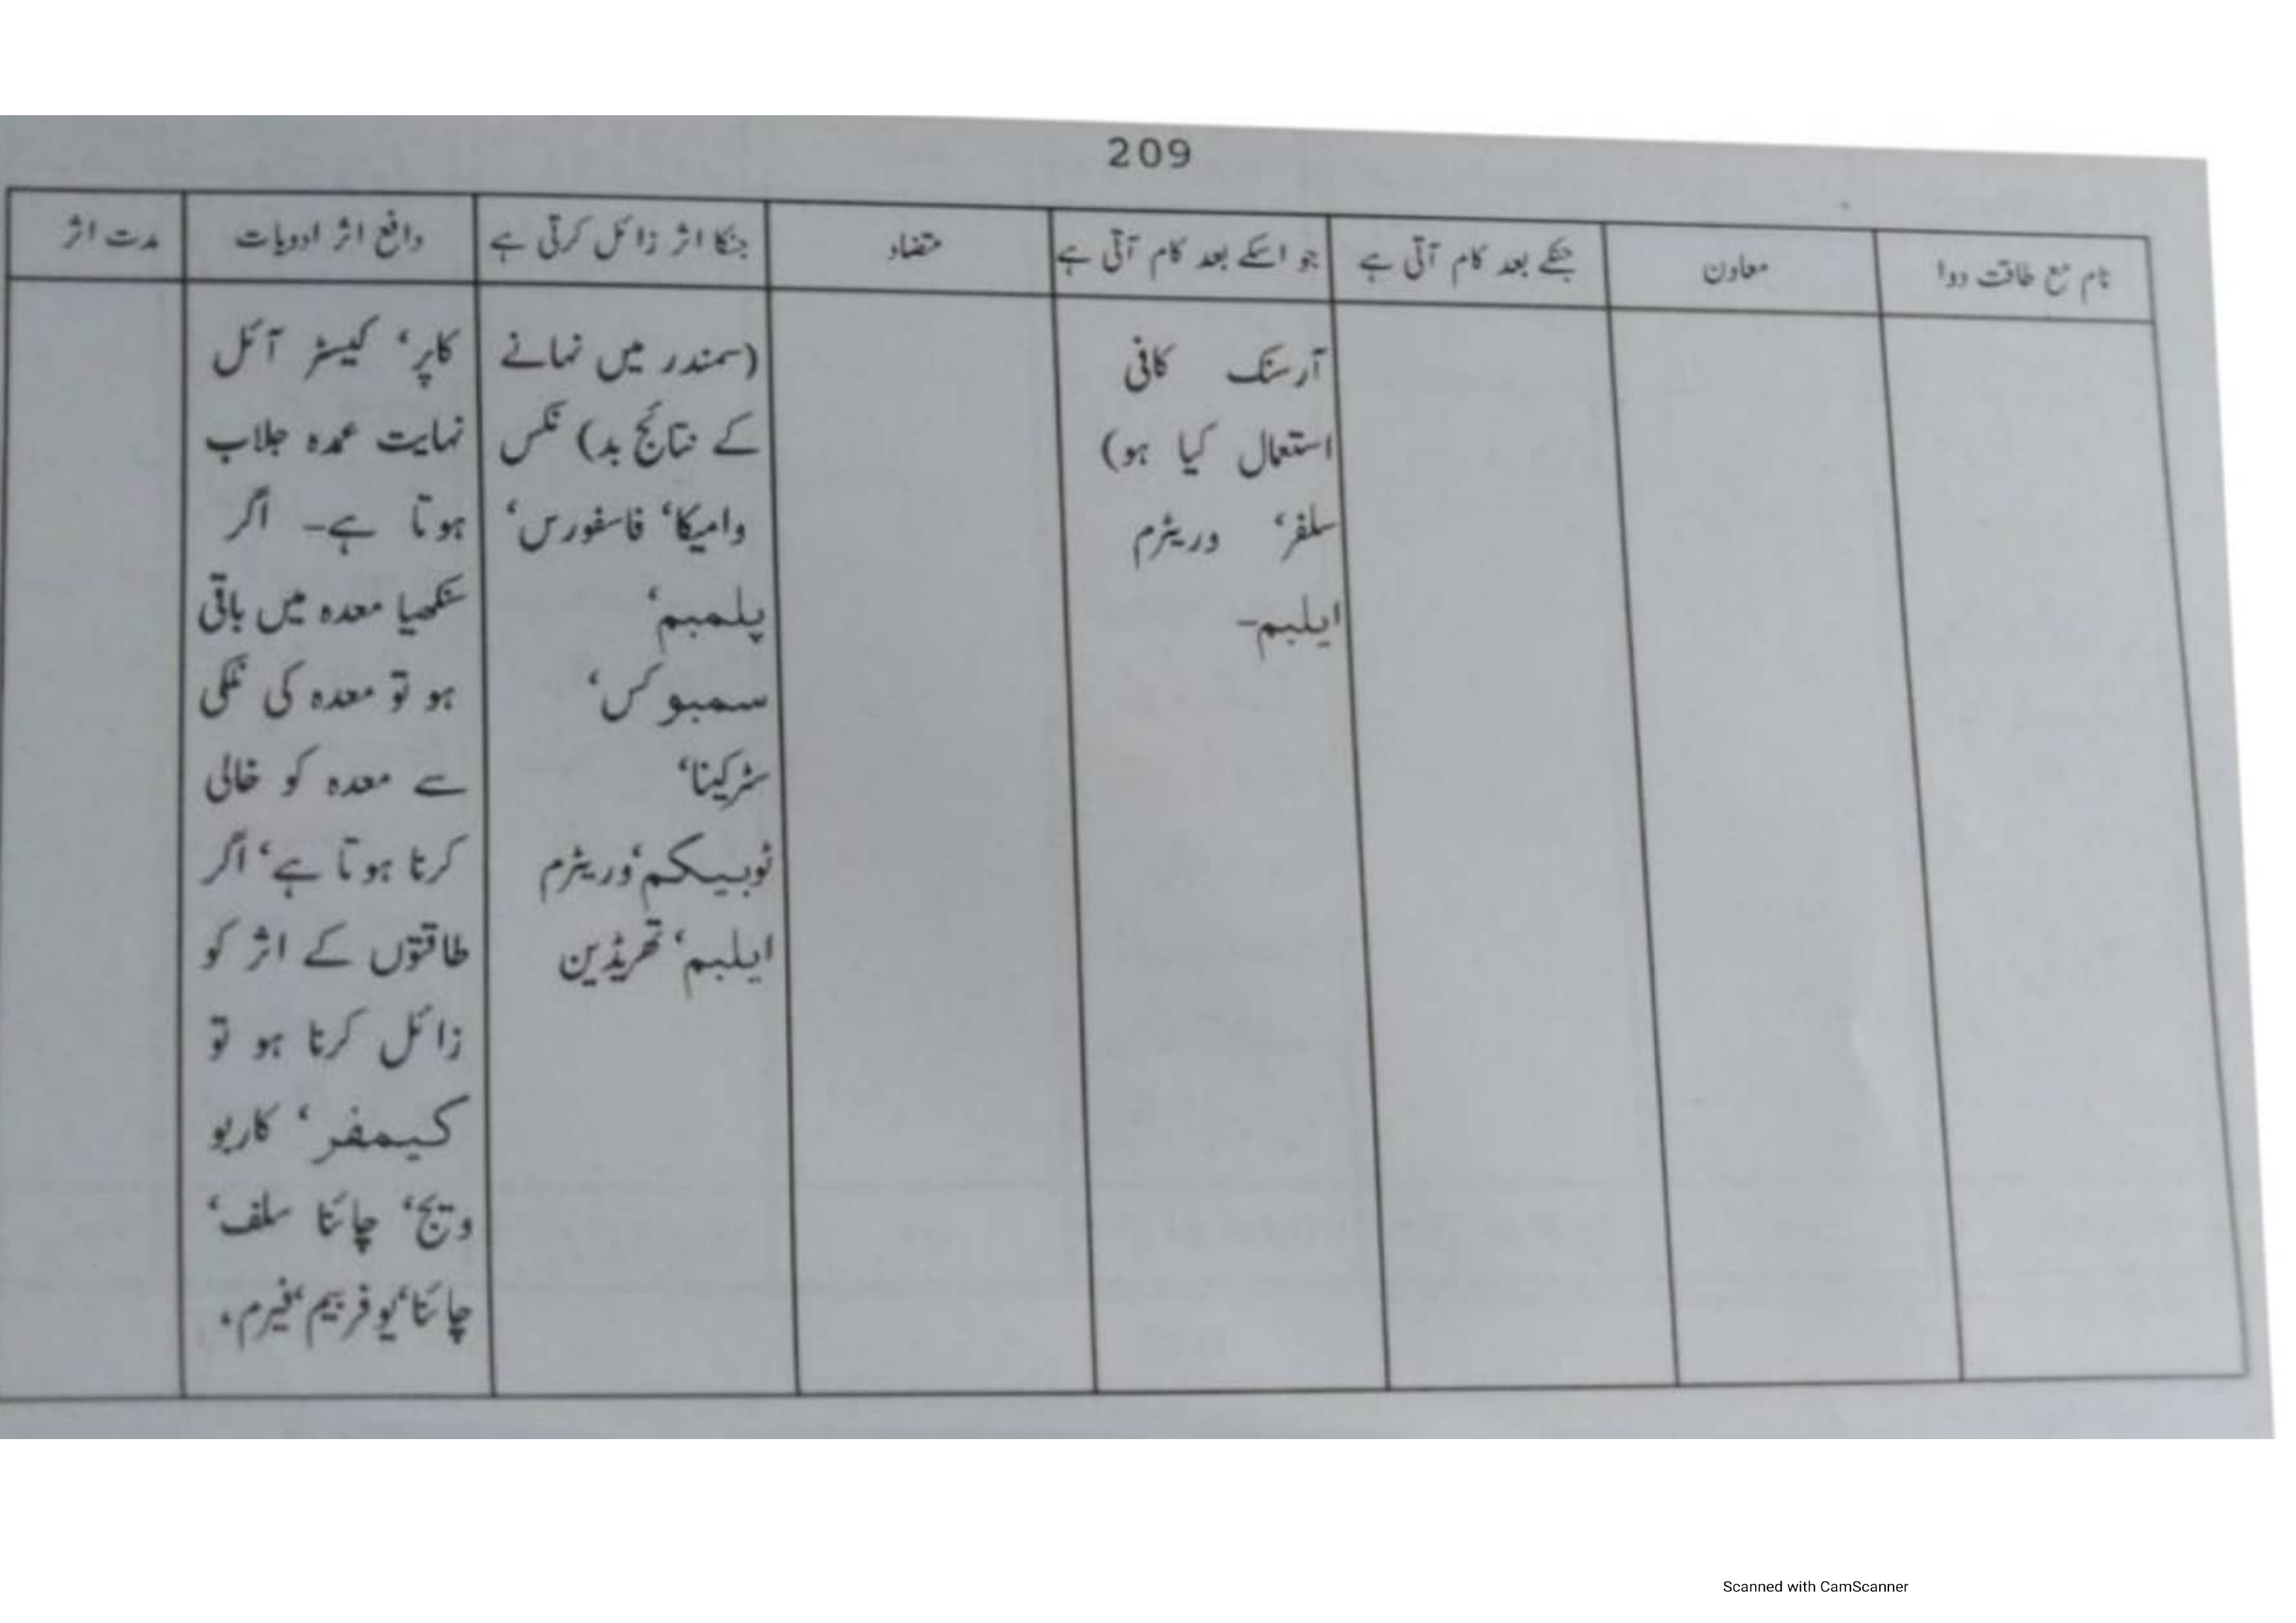 209
نام مع طاقت دوا
معاون
جنکے بعد کام آتی ہے
جو اسکے بعد کام آتی ہے
متضاد
جنکا اثر زائل کرتی ہے
دافع اثر ادویات
مدت اثر
آرسنک کافی
استعمال کیا ہو)
سلفر، وریٹرم
ایلبم-
(سمندر میں نہانے
کے نتائج بد) نکس
وامیکا، فاسفورس،
پلمبم،
سمبوکس،
سٹرکینا،
ٹوبیکم، وریٹرم
ایلبم، تھریڈین
کاپر، کیسٹر آئل
نہایت عمدہ جلاب
ہوتا ہے- اگر
سنکھیا معدہ میں باقی
ہو تو معدہ کی نلکی
سے معدہ کو خالی
کرنا ہوتا ہے، اگر
طاقتوں کے اثر کو
زائل کرنا ہو تو
کیمفر، کاربو
ویج، چائنا سلف،
چائنا، یوفریم، فیرم،
Scanned with CamScanner